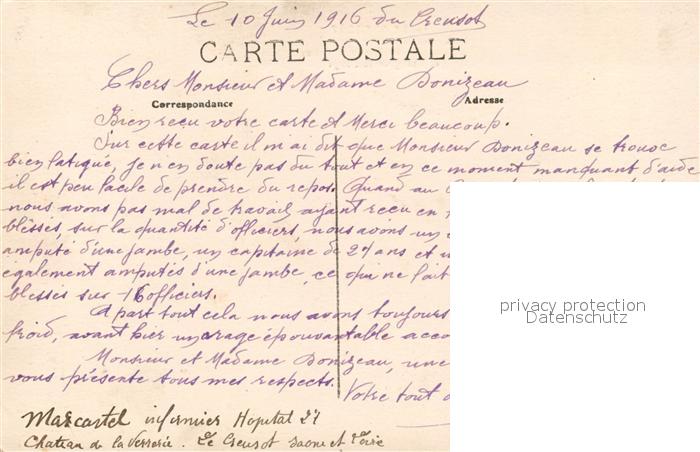 Le 10 Juin 1916 du Creusot
CARTE POSTALE
Chers Monsieur et Madame Donizeau
Correspondance Adresse
Bien reçu votre carte et Merci beaucoup.
Sur cette carte il m ai dit que Monsieur Donizeau se trouve
bien fatiqué, je n en doute pas du tout et en ce moment manquant d'aide
il est peu facile de prendre du repos. Quand au
nous avons pas mal de travail ayant reçu en
blessés, sur la quantité d'officiers, nous avons un
amputé d'une jambe, un capitaine de 27 ans et
également amputés d'une jambe, ce qui ne fait
blessés sur 16 officiers.
Apart tout cela nous avons toujours
froid, avant hier un orage épouvantable
Monsieur et Madame Donizeau, une
vous présente tous mes respects. Votre tout
privacy protection
Datenschutz
Marcastel infirmier Hopital 27
Chateau de la Verrerie. Le Creusot Saone et Loire